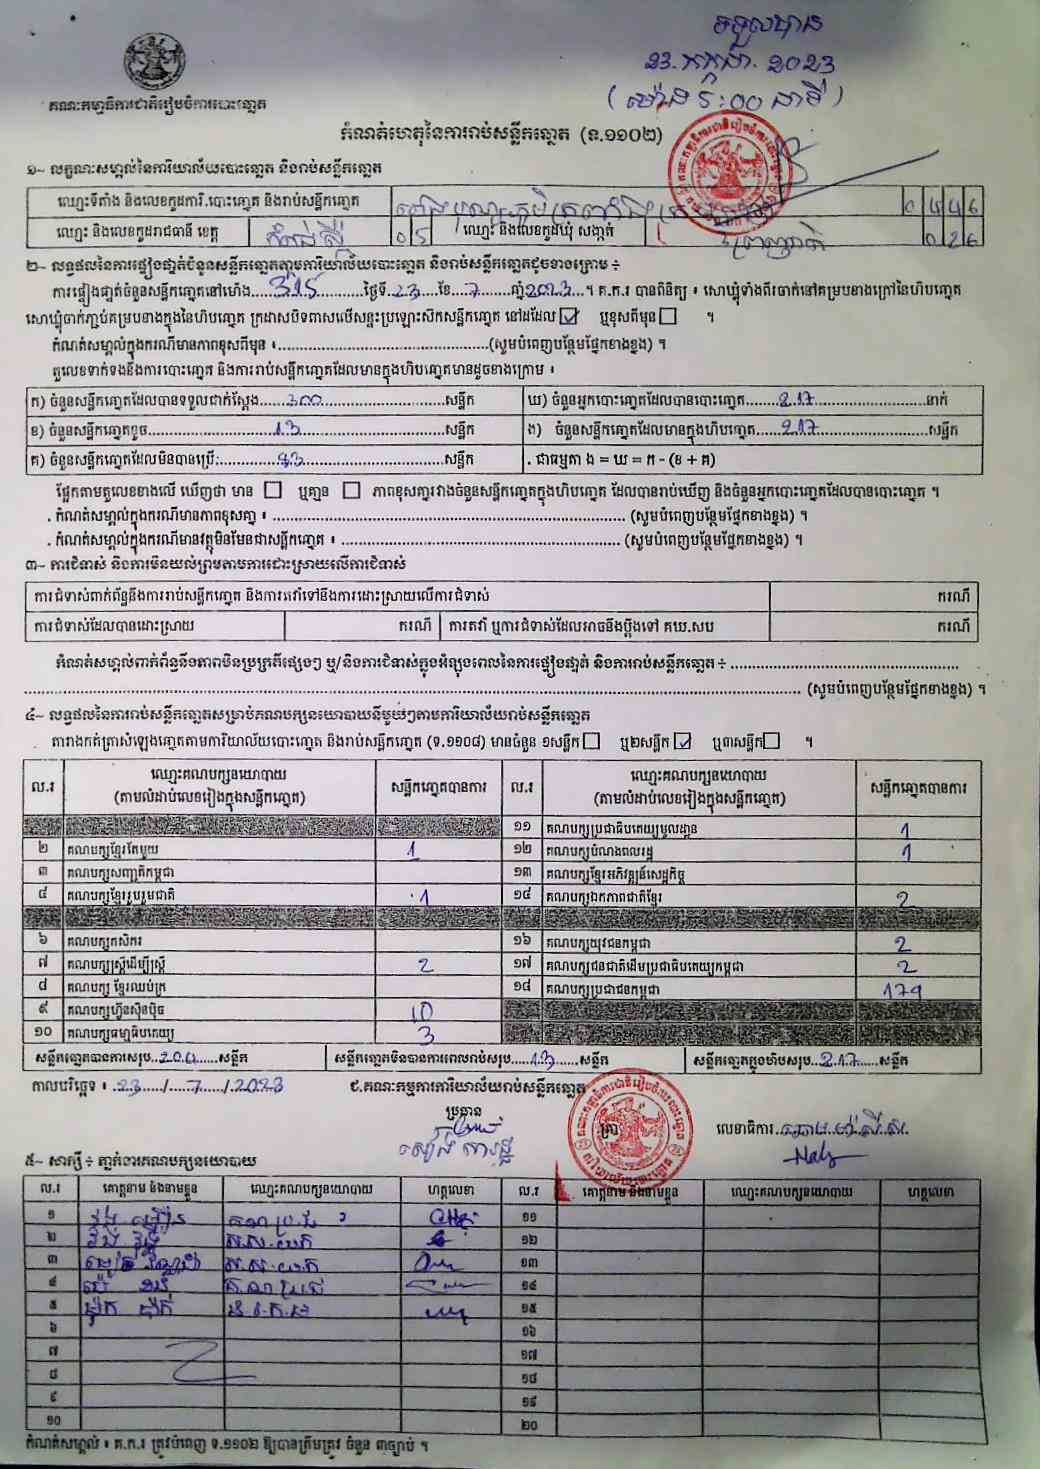 ទទួលបាន
23. កក្កដា. 2023
(ម៉ោង 5:00 នាទី)
គណៈកម្មាធិការជាតិរៀបចំការបោះឆ្នោត
កំណត់ហេតុនៃការរាប់សន្លឹកឆ្នោត (ទ.១១០២)
១- លក្ខណៈសម្គាល់នៃការិយាល័យបោះឆ្នោត និងរាប់សន្លឹកឆ្នោត
ឈ្មោះទីតាំង និងលេខកូដការិ.បោះឆ្នោត និងរាប់សន្លឹកឆ្នោត 0446
ឈ្មោះ និងលេខកូដរាជធានី ខេត្ត កំពង់ស្ពឺ 05 ឈ្មោះ និងលេខកូដឃុំ សង្កាត់ 026
២- លទ្ធផលនៃការផ្ទៀងផ្ទាត់ចំនួនសន្លឹកឆ្នោតតាមការិយាល័យបោះឆ្នោត និងរាប់សន្លឹកឆ្នោតដូចខាងក្រោម ÷
ការផ្ទៀងផ្ទាត់ចំនួនសន្លឹកឆ្នោតនៅម៉ោង...315...ថ្ងៃទី..23...ខែ..7...ឆ្នាំ2023..។ គ.ក.រ បានពិនិត្យ ៖ សោឃ្លុំទាំងពីរចាក់នៅគម្របខាងក្រៅនៃហិបឆ្នោត
សោឃ្លុំចាក់ភ្ជាប់គម្របខាងក្នុងនៃហិបឆ្នោត ក្រដាសបិទពាសលើសន្ទះប្រឡោះសិកសន្លឹកឆ្នោត នៅដដែល ☑ ឬខុសពីមុន ☐ ។
កំណត់សម្គាល់ក្នុងករណីមានភាពខុសពីមុន ៖...(សូមបំពេញបន្ថែមផ្នែកខាងខ្នង) ។
តួលេខទាក់ទងនឹងការបោះឆ្នោត និងការរាប់សន្លឹកឆ្នោតដែលមានក្នុងហិបឆ្នោតមានដូចខាងក្រោម ៖
ក) ចំនួនសន្លឹកឆ្នោតដែលបានទទួលជាក់ស្តែង...300...សន្លឹក ឃ) ចំនួនអ្នកបោះឆ្នោតដែលបានបោះឆ្នោត...217...នាក់
ខ) ចំនួនសន្លឹកឆ្នោតខូច...13...សន្លឹក ង) ចំនួនសន្លឹកឆ្នោតដែលមានក្នុងហិបឆ្នោត...217...សន្លឹក
គ) ចំនួនសន្លឹកឆ្នោតដែលមិនបានប្រើ:...83...សន្លឹក . ជាធម្មតា ង = ឃ = ក - (ខ + គ)
ផ្អែកតាមតួលេខខាងលើ ឃើញថា មាន ☐ ឬគ្មាន ☐ ភាពខុសគ្នារវាងចំនួនសន្លឹកឆ្នោតក្នុងហិបឆ្នោត ដែលបានរាប់ឃើញ និងចំនួនអ្នកបោះឆ្នោតដែលបានបោះឆ្នោត ។
. កំណត់សម្គាល់ក្នុងករណីមានភាពខុសគ្នា ៖ ... (សូមបំពេញបន្ថែមផ្នែកខាងខ្នង) ។
. កំណត់សម្គាល់ក្នុងករណីមានវត្ថុមិនមែនជាសន្លឹកឆ្នោត ៖ ... (សូមបំពេញបន្ថែមផ្នែកខាងខ្នង) ។
៣- ការជំទាស់ និងការមិនយល់ព្រមតាមការដោះស្រាយលើការជំទាស់
ការជំទាស់ពាក់ព័ន្ធនឹងការរាប់សន្លឹកឆ្នោត និងការតវ៉ាទៅនឹងការដោះស្រាយលើការជំទាស់ ករណី
ការជំទាស់ដែលបានដោះស្រាយ ករណី ការតវ៉ា ឬការជំទាស់ដែលអាចនឹងប្តឹងទៅ គឃ.សប ករណី
កំណត់សម្គាល់ពាក់ព័ន្ធនឹងភាពមិនប្រក្រតីផ្សេងៗ ឬ/និងការជំទាស់ក្នុងអំឡុងពេលនៃការផ្ទៀងផ្ទាត់ និងការរាប់សន្លឹកឆ្នោត ÷ ...
... (សូមបំពេញបន្ថែមផ្នែកខាងខ្នង) ។
៤- លទ្ធផលនៃការរាប់សន្លឹកឆ្នោតសម្រាប់គណបក្សនយោបាយនីមួយៗតាមការិយាល័យរាប់សន្លឹកឆ្នោត
តារាងកត់ត្រាសំឡេងឆ្នោតតាមការិយាល័យបោះឆ្នោត និងរាប់សន្លឹកឆ្នោត (ទ.១១០៨) មានចំនួន ១សន្លឹក ☐ ឬ២សន្លឹក ☑ ឬ៣សន្លឹក ☐ ។
ល.រ ឈ្មោះគណបក្សនយោបាយ (តាមលំដាប់លេខរៀងក្នុងសន្លឹកឆ្នោត) សន្លឹកឆ្នោតបានការ ល.រ ឈ្មោះគណបក្សនយោបាយ (តាមលំដាប់លេខរៀងក្នុងសន្លឹកឆ្នោត) សន្លឹកឆ្នោតបានការ
១១ គណបក្សប្រជាធិបតេយ្យមូលដ្ឋាន 1
២ គណបក្សខ្មែរតែមួយ 1 ១២ គណបក្សបំណងពលរដ្ឋ 1
៣ គណបក្សសញ្ជាតិកម្ពុជា ១៣ គណបក្សខ្មែរអភិវឌ្ឍន៍សេដ្ឋកិច្ច
៤ គណបក្សខ្មែររួបរួមជាតិ 1 ១៤ គណបក្សឯកភាពជាតិខ្មែរ 2
៦ គណបក្សកសិករ ១៦ គណបក្សយុវជនកម្ពុជា 2
៧ គណបក្សស្ត្រីដើម្បីស្ត្រី 2 ១៧ គណបក្សជនជាតិដើមប្រជាធិបតេយ្យកម្ពុជា 2
៨ គណបក្ស ខ្មែរឈប់ក្រ ១៨ គណបក្សប្រជាជនកម្ពុជា 179
៩ គណបក្សហ៊្វុនស៊ិនប៉ិច 10
១០ គណបក្សធម្មាធិបតេយ្យ 3
សន្លឹកឆ្នោតបានការសរុប..204...សន្លឹក សន្លឹកឆ្នោតមិនបានការពេលរាប់សរុប...13...សន្លឹក សន្លឹកឆ្នោតក្នុងហិបសរុប..217...សន្លឹក
កាលបរិច្ឆេទ ៖ .23.../...7.../.2023 ជ.គណៈកម្មការការិយាល័យរាប់សន្លឹកឆ្នោត
ប្រធាន ត្រា លេខាធិការ
៥- សាក្សី ÷ ភ្នាក់ងារគណបក្សនយោបាយ
ល.រ គោត្តនាម និងនាមខ្លួន ឈ្មោះគណបក្សនយោបាយ ហត្ថលេខា ល.រ គោត្តនាម និងនាមខ្លួន ឈ្មោះគណបក្សនយោបាយ ហត្ថលេខា
១ ១១
២ ១២
៣ ១៣
៤ ១៤
៥ ១៥
៦ ១៦
៧ ១៧
៨ ១៨
៩ ១៩
១០ ២០
កំណត់សម្គាល់ ៖ គ.ក.រ ត្រូវបំពេញ ទ.១១០២ ឱ្យបានត្រឹមត្រូវ ចំនួន ៣ច្បាប់ ។